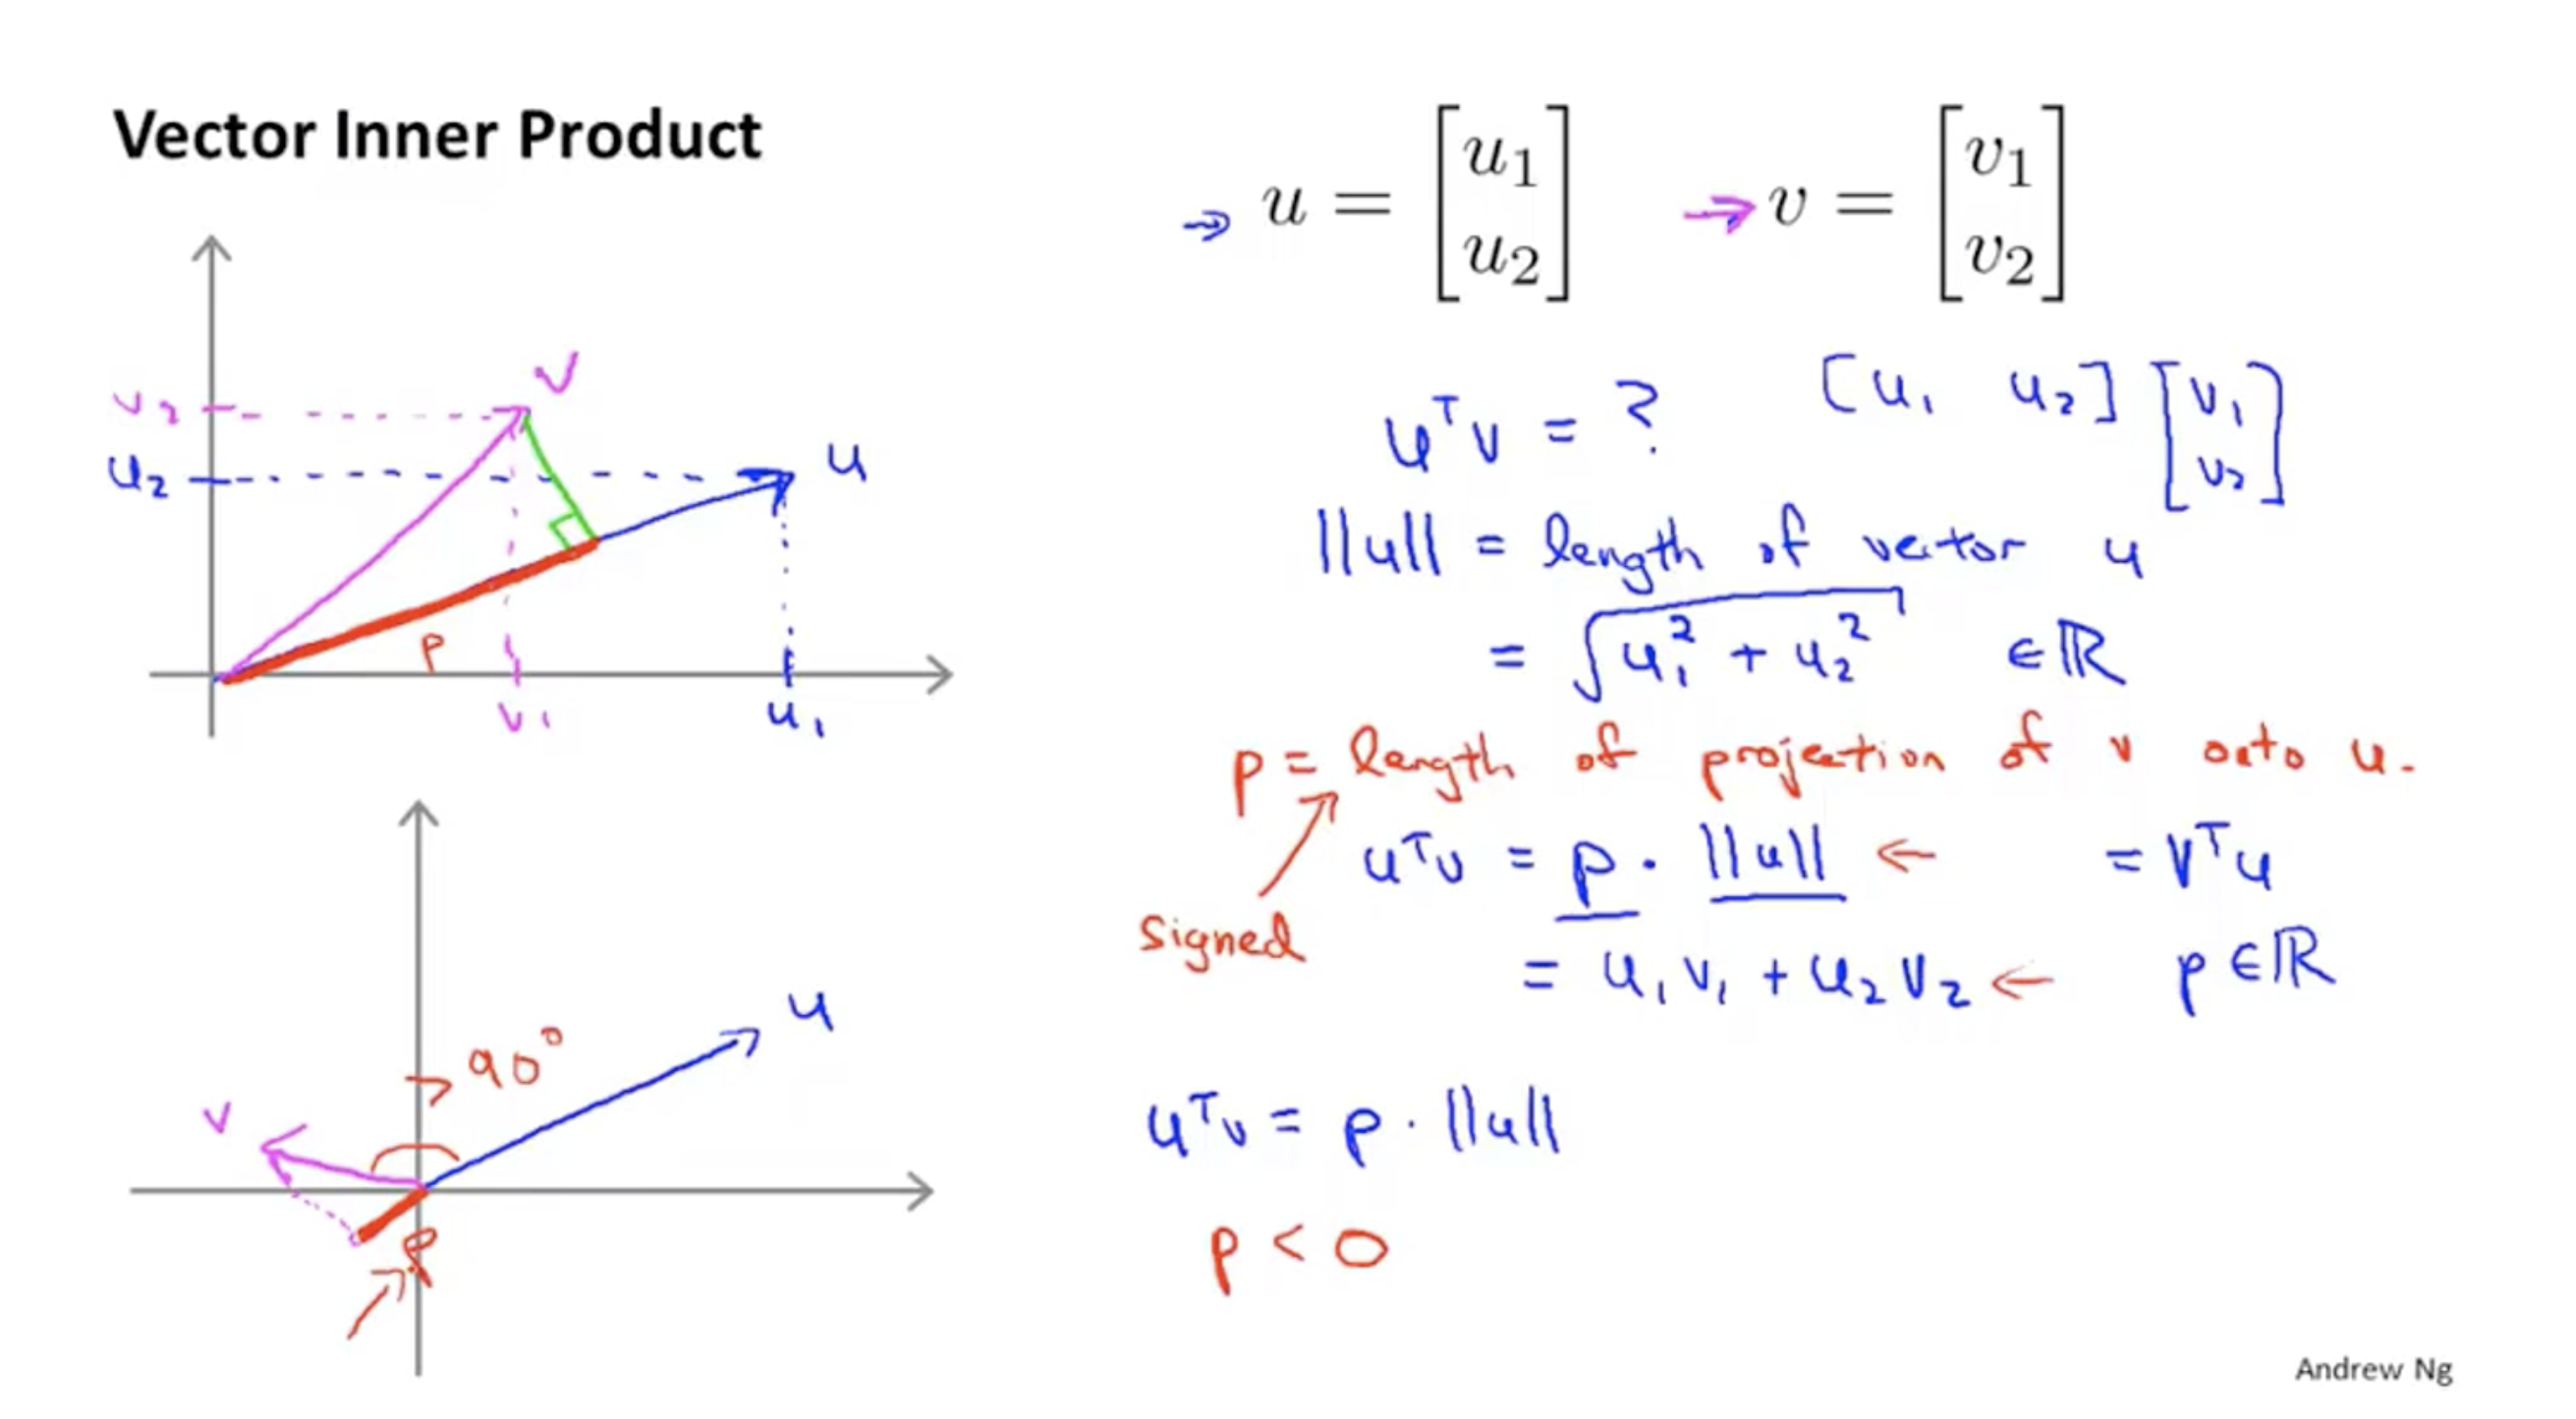 Vector Inner Product
⇒ u = [u1 u2] → v = [v1 v2]
v
v2
u2
u
p
v1
u1
uᵀv = ? [u1 u2] [v1 v2]
||u|| = length of vector u
= √(u1² + u2²) ∈ ℝ
p = length of projection of v onto u.
signed
uᵀv = p · ||u|| ← = vᵀu
= u1v1 + u2v2 ← p ∈ ℝ
u
> 90°
v
p
uᵀv = p · ||u||
p < 0
Andrew Ng